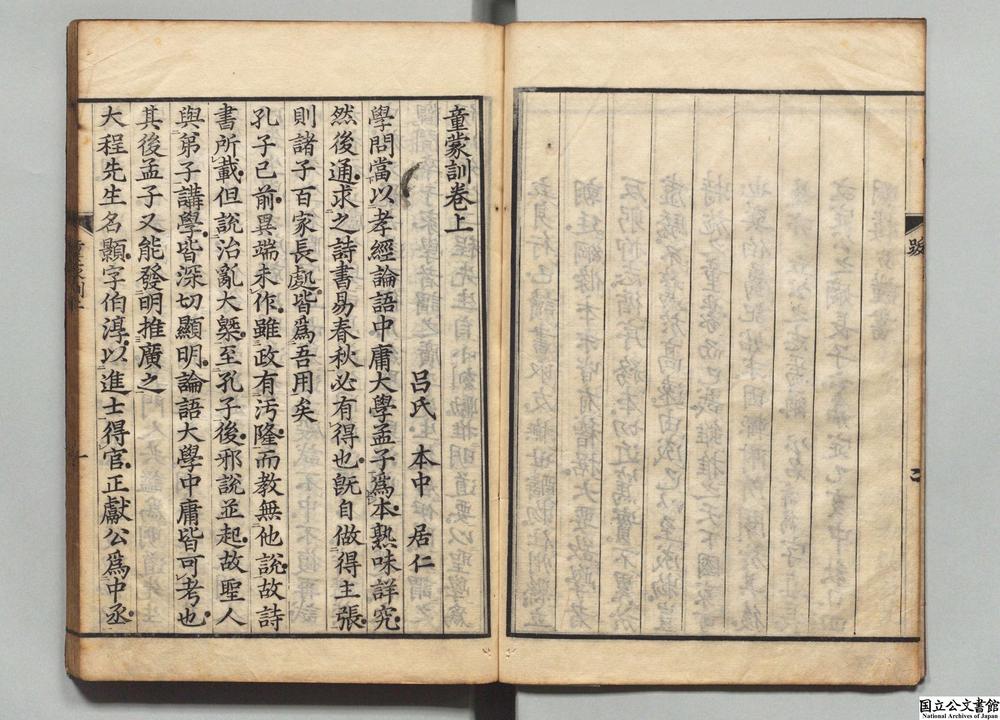 童蒙訓卷上
呂氏 本中 居仁
學問當以孝經論語中庸大學孟子爲本熟味詳究
然後通求之詩書易春秋必有得也旣自做得主張
則諸子百家長處皆爲吾用矣
孔子已前異端未作雖政有汚隆而教無他說故詩
書所載但說治亂大槩至孔子後邪說並起故聖人
與弟子講學皆深切顯明論語大學中庸皆可考也
其後孟子又能發明推廣之
大程先生名顥字伯淳以進士得官正獻公爲中丞
一
国立公文書館
National Archives of Japan